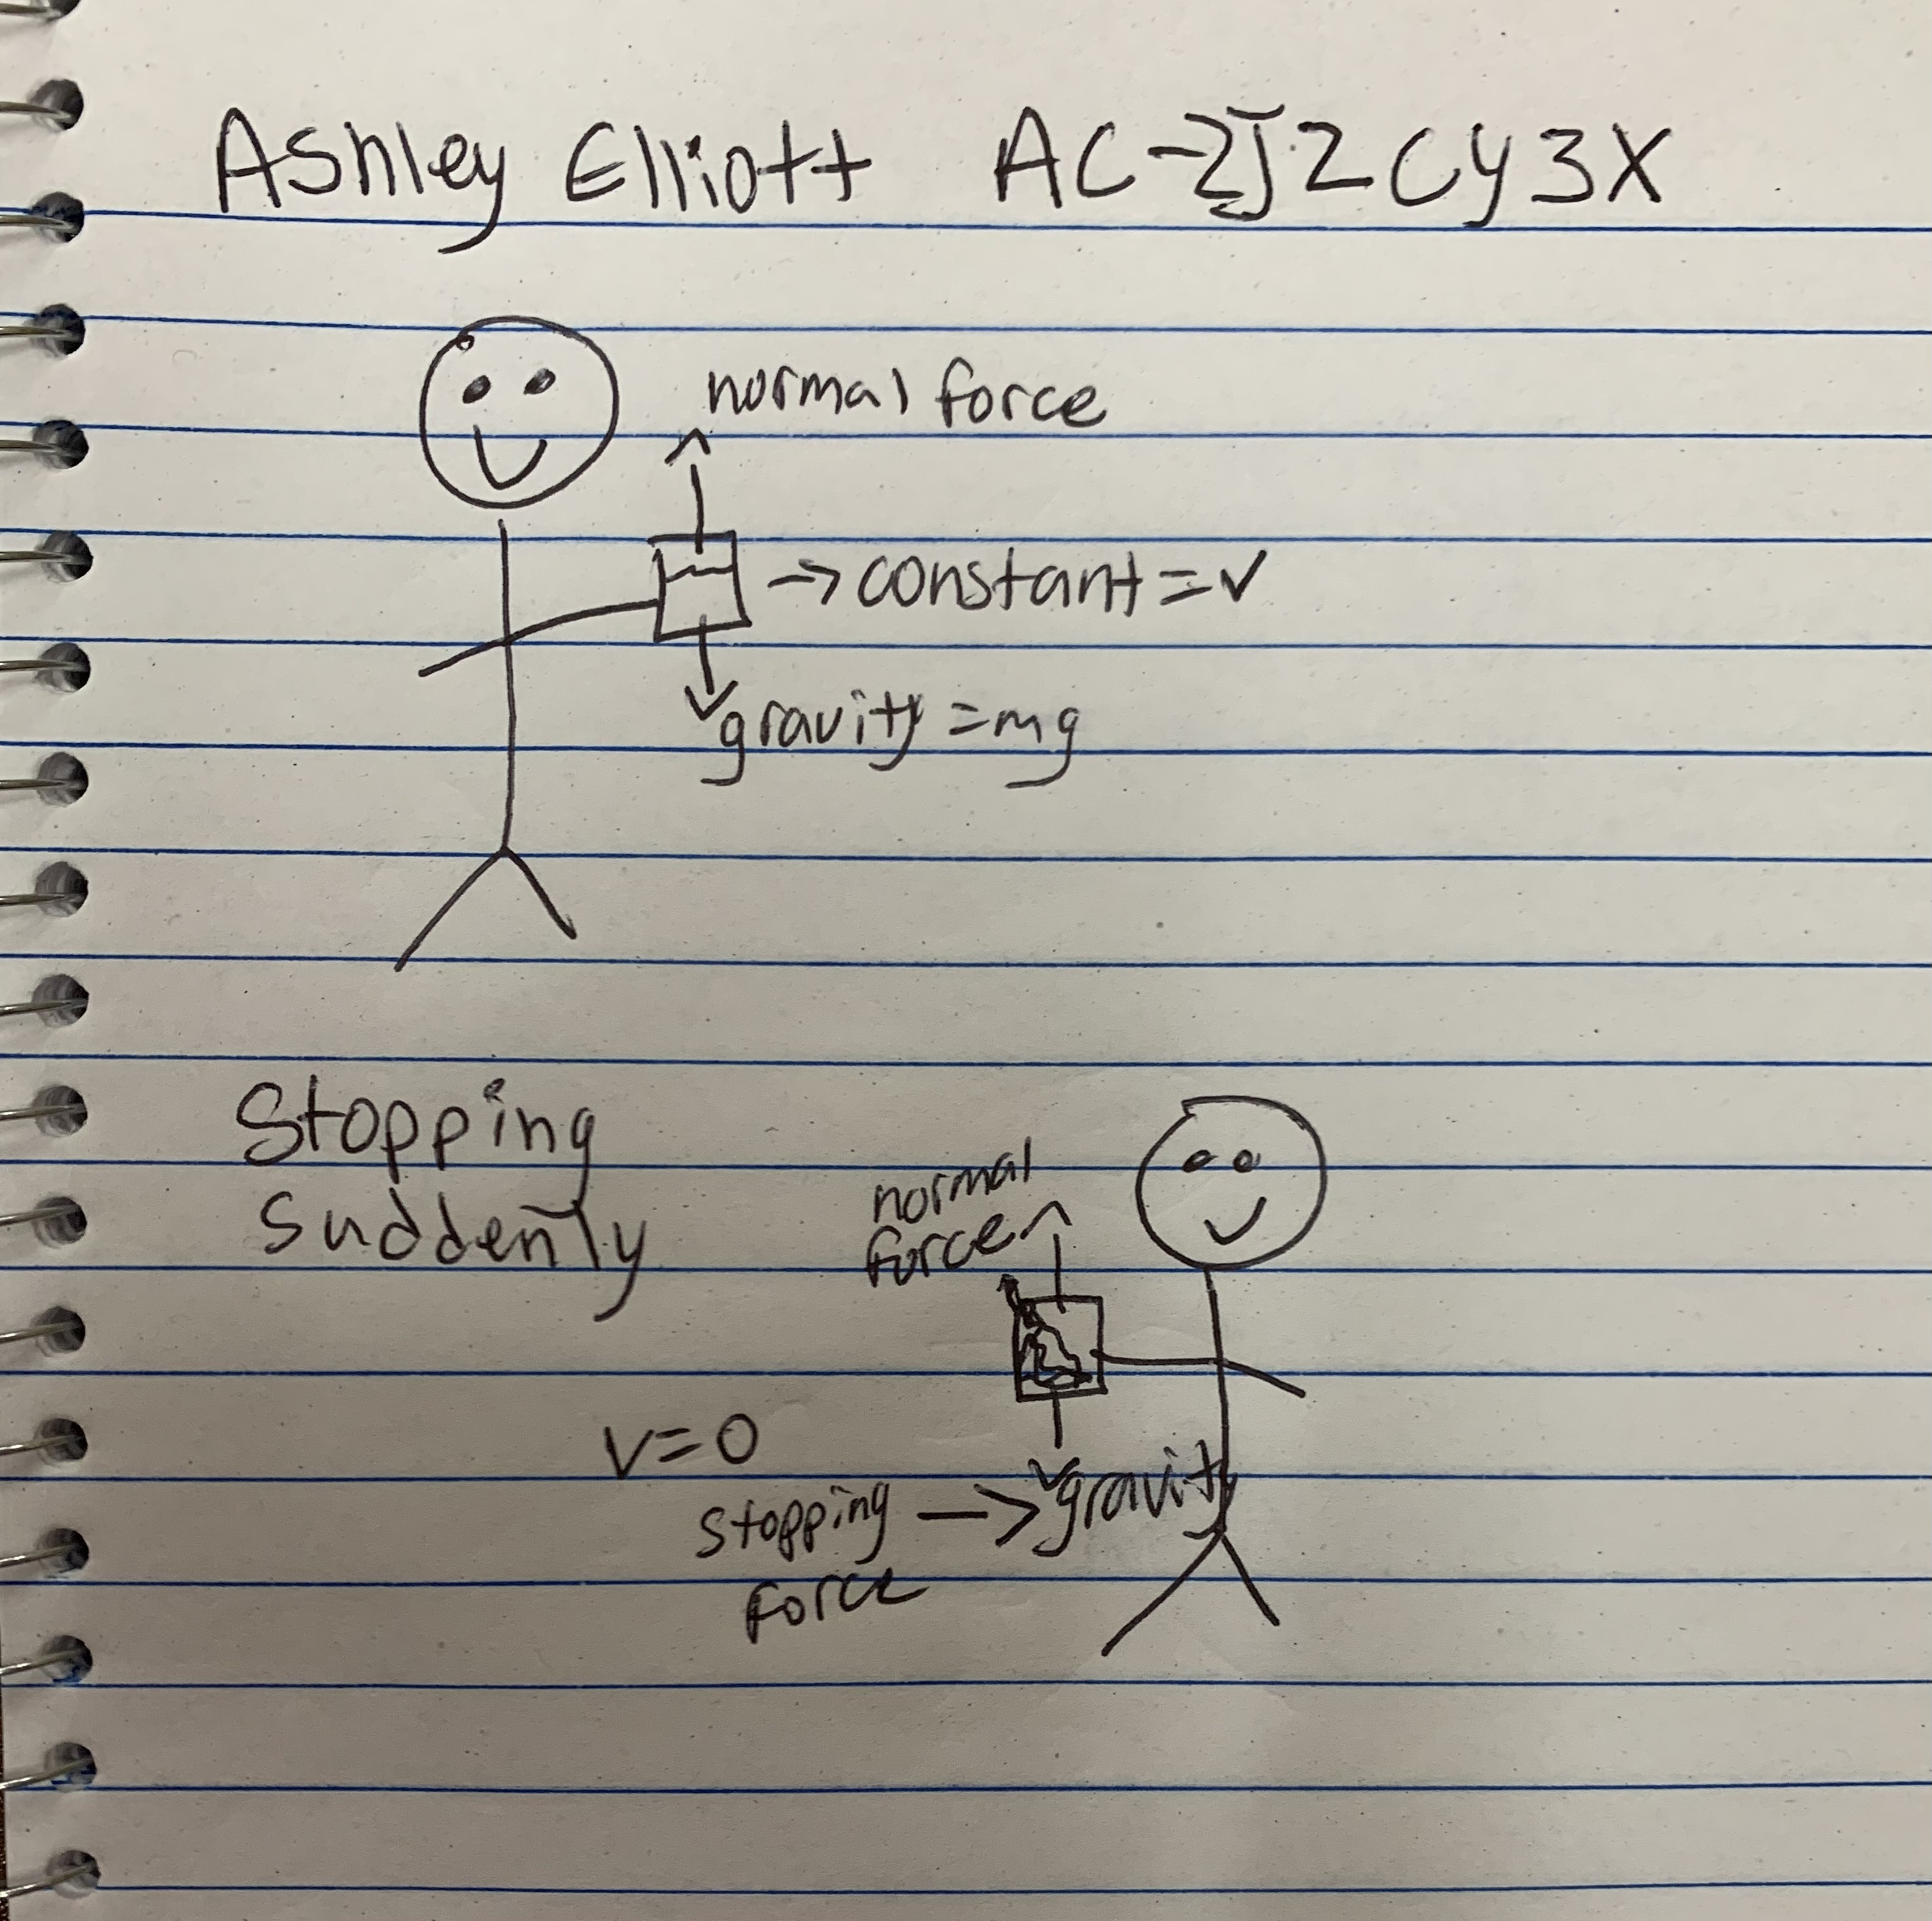 Ashley Elliott AC-2J2Cy3X
normal force
→ constant = v
gravity = mg
Stopping
suddenly
normal
force
v=0
gravity
stopping →
force